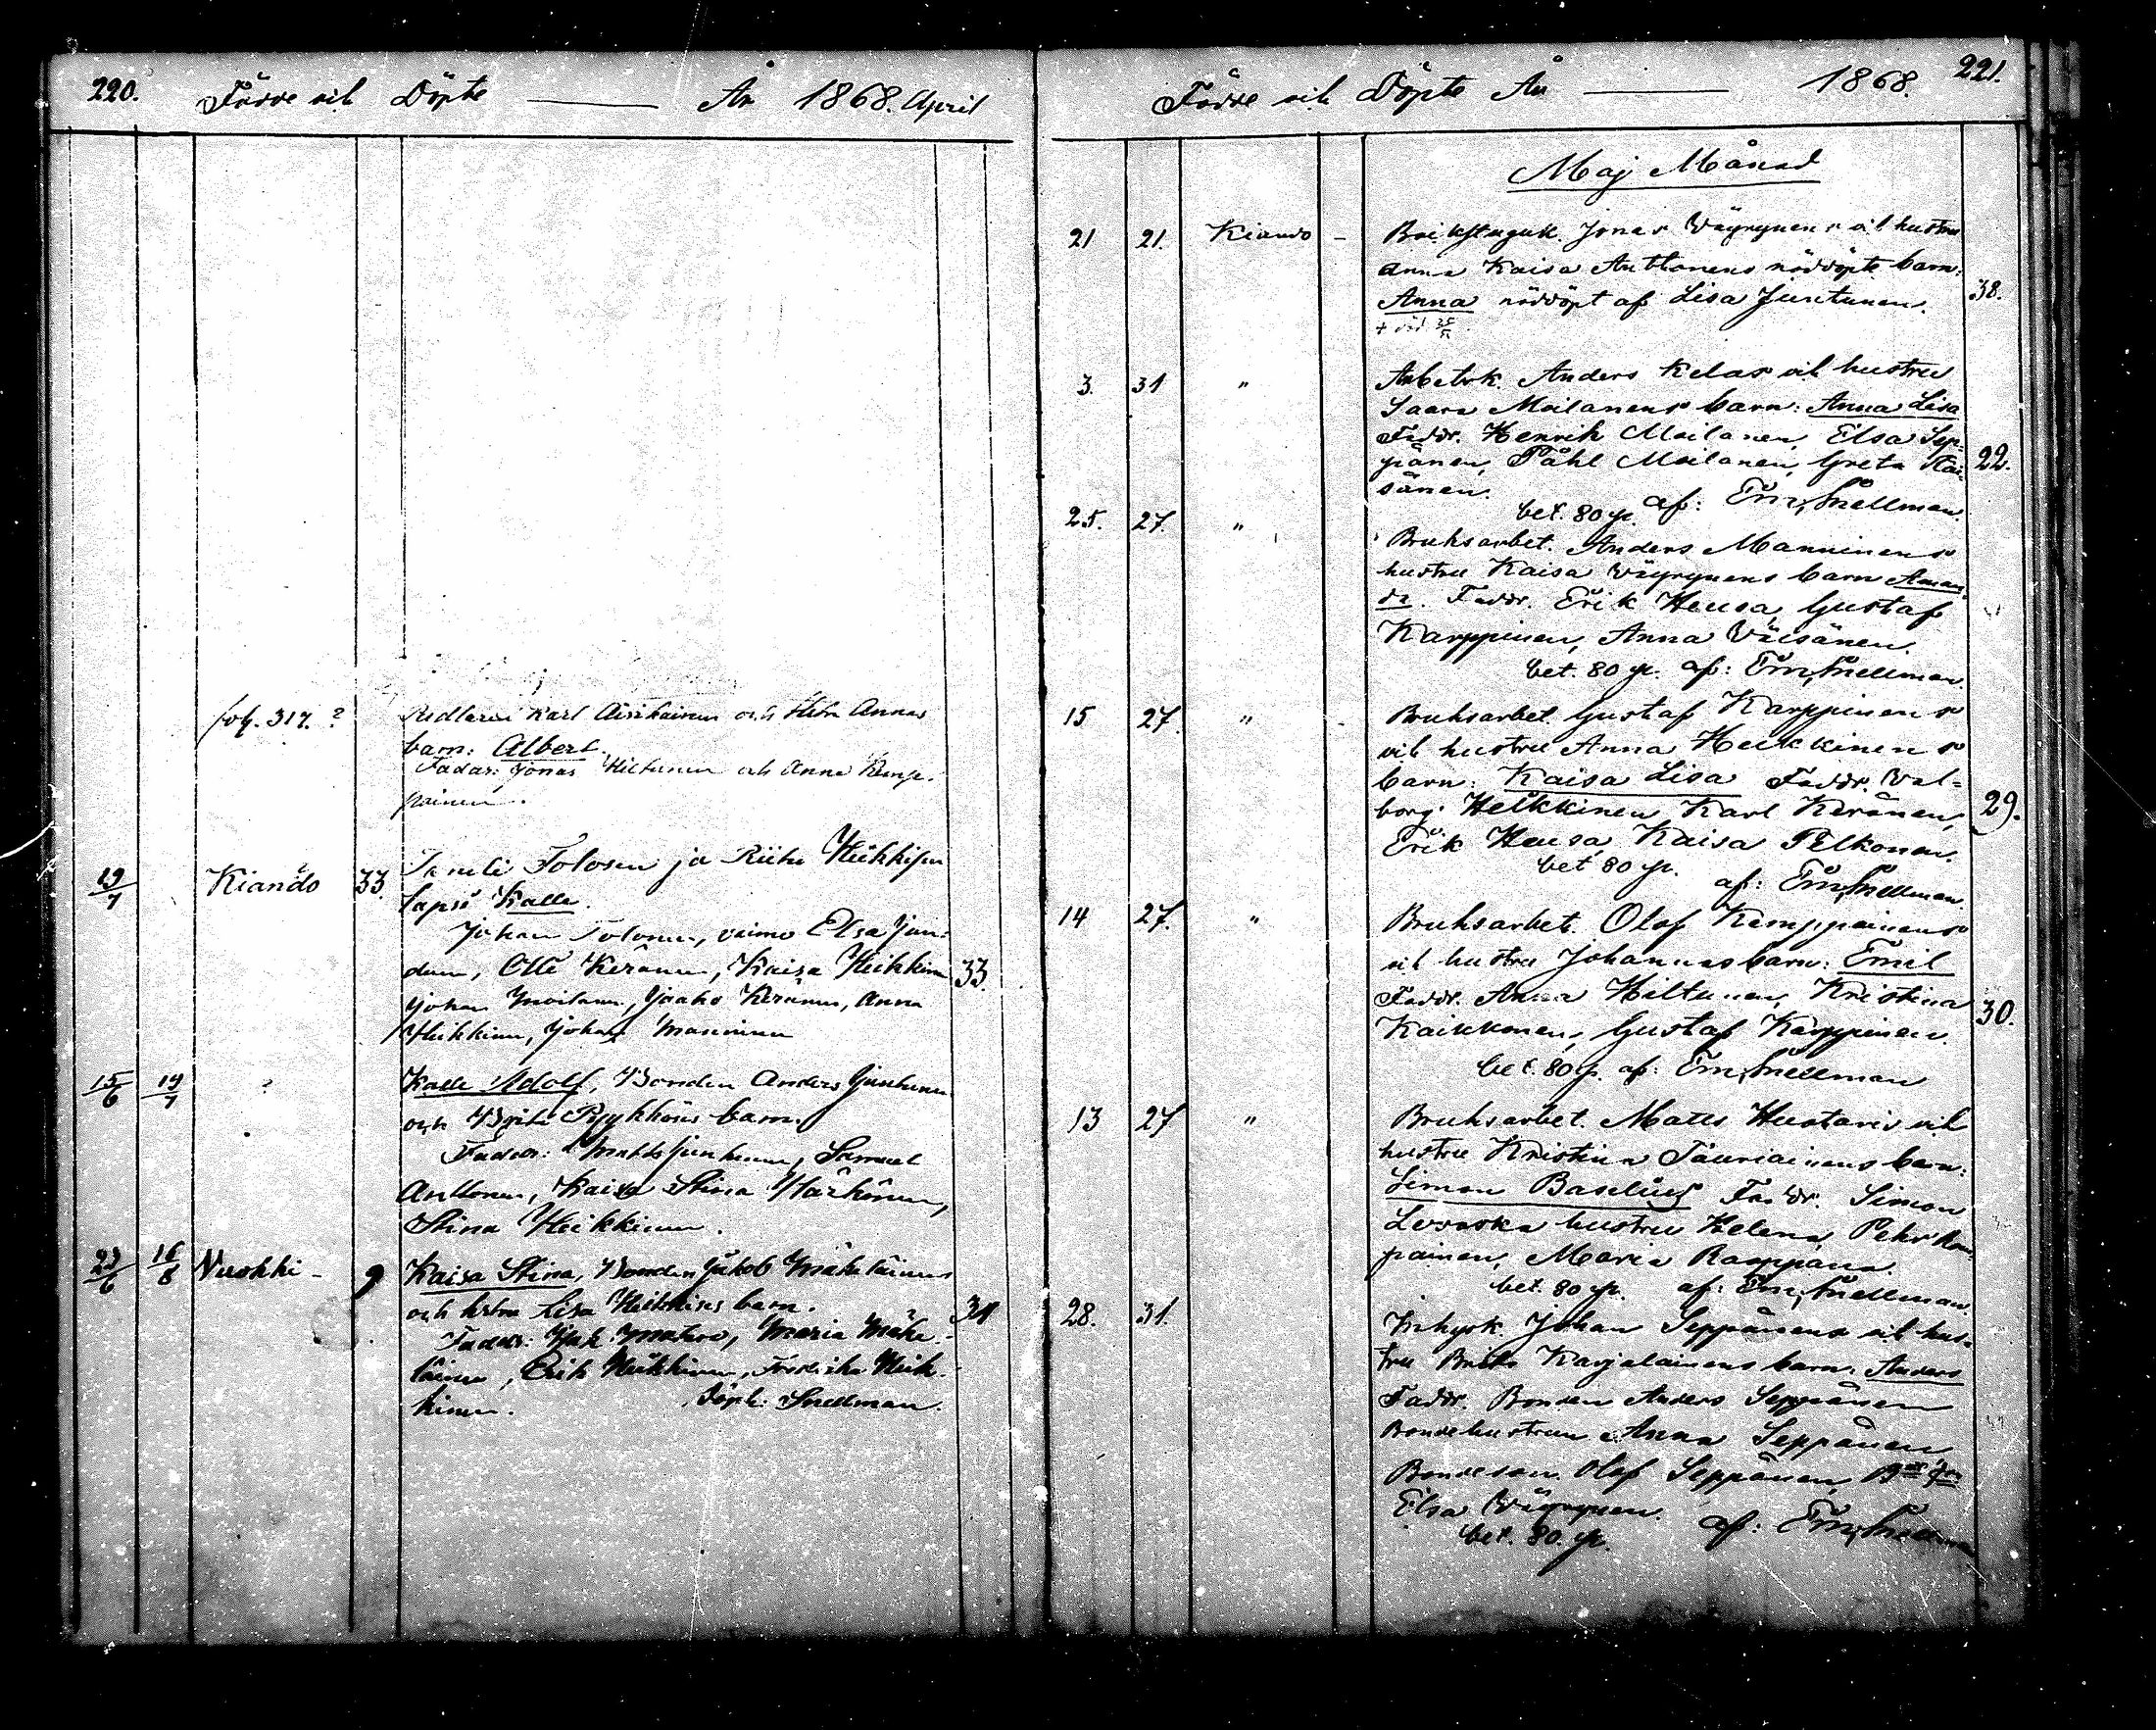 220. Födde och Döpte — År 1868. April
fol. 317. ?
Karl och Hstn Annas
barn: Albert.
Faddr: Jonas Hiltunen och Anna Kemp-
painen.
19/7 Kiando 33 Tolosen ja Riitta Heikkisen
lapsi Kalle.
Johan Tolonen, vaimo Elsa Jun-
Olli Keränen, Kaisa Heikkinen 33.
Johan Moilanen, Jaako Keränen, Anna
Heikkinen, Johan Manninen
15/6 19/7 ? Kalle Adolf, Bonden Anders Juntunen
och Brita Pyykkös barn.
Faddr: Matts Juntunen, Samuel
Anttonen, Kaisa Stina Härkönen,
Stina Heikkinen.
23/6 16/8 Vuokki - 9 Kaisa Stina, Bonden Jakob Mäkeläinens
och hstru Lisa Heikkinens barn. 31
Faddr: Maria Mäke-
läinen, Erik Heikkinen, Fredrika Heik-
kinen. Döpt: Snellman.
Födde och Döpte År — 1868. 221.
Maj Månad
21 21. Kiando - Jonas Väyrynens och hustru
Anna Kaisa Anttonens nöddöpte barn:
Anna nöddöpt af Lisa Juntunen. 38.
+ död
3. 31 " Arbetsk. Anders Kelas och hustru
Saara Moilanens barn: Anna Lisa
Faddr. Henrik Moilanen, Elsa Sep-
pänen, Påhl Moilanen, Greta 22.
sänen.
bet. 80 p. af: Em. Snellman.
25. 27. " Bruksarbet. Anders Manninens
hustru Kaisa Väyrynens barn Aman-
da. Faddr. Erik Heusa, Gustaf
Karppinen, Anna Väisänen.
bet. 80 p. af: Em. Snellman.
15 27. " Bruksarbet. Gustaf Karppinens
och hustru Anna Heikkinens
barn: Kaisa Lisa Faddr. Val-
borg Heikkinen Karl Keränen, 29.
Erik Heusa Kaisa Pelkonen.
bet 80 p. af: Em. Snellman.
14 27. " Bruksarbet. Olof Kemppainens
och hustru Johannas barn: Emil
Faddr. Anna Hiltunen, Kristina 30.
Kaikkonen, Gustaf Karppinen.
bet. 80 p. af: Em. Snellman
13 27 " Bruksarbet. Matts Hustaris och
hustru Kristina Tauriainens barn:
Simon Basilius Faddr. Simon
Levaska hustru Helena, Pehr
painen, Maria
bet. 80 p. af: Em. Snellman.
28. 31. Johan Seppänens och hus-
tru Brita Karjalainens barn: Anders
Faddr. Bonden Anders Seppänen
Bondehustrun Anna Seppänen
Bondeson Olof Seppänen,
Elsa Väyrynen.
bet. 80. p. af: Em. Snellman